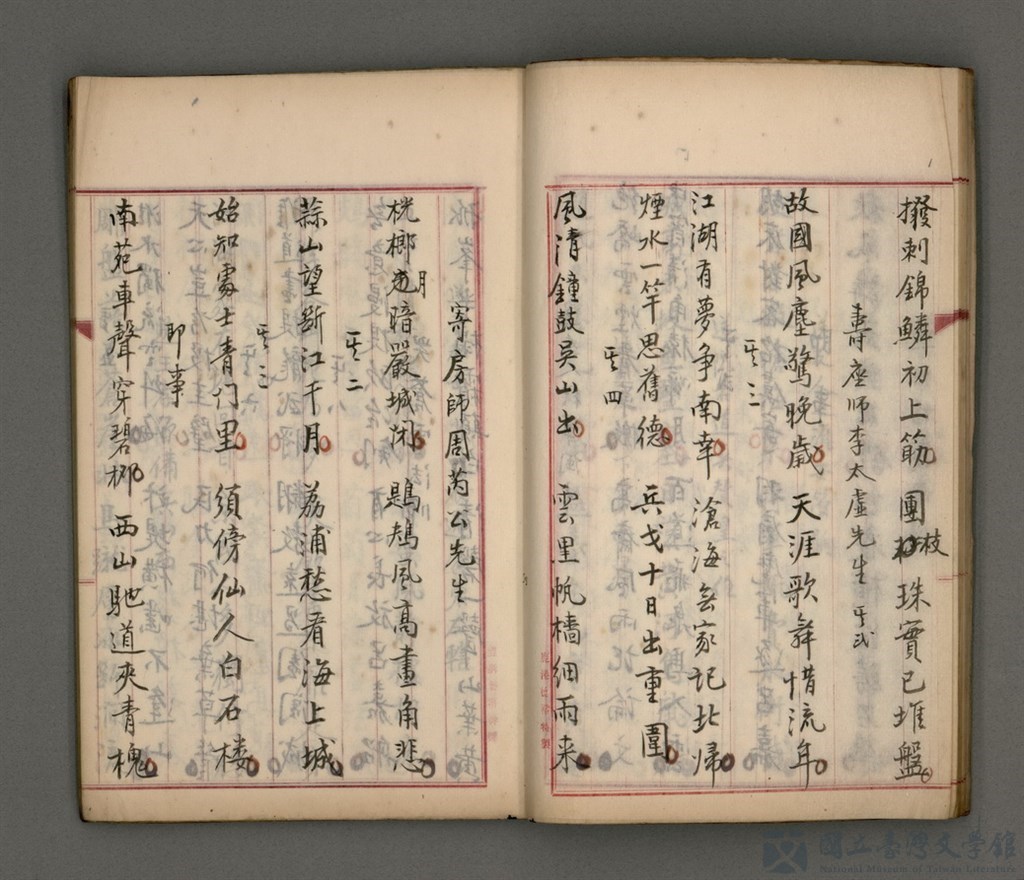 撥剌錦鱗初上筯團枝珠實已堆盤
壽座師李太虛先生 其弍
故國風塵驚晚歲天涯歌舞惜流年
其三
江湖有夢爭南幸滄海無家記北歸
煙水一竿思舊德兵戈十日出重圍
其四
風清鐘鼓吳山出雲里帆檣細雨来
寄房師周芮公先生
桄榔月暗嚴城闭鶗鴂風高畫角悲
其二
蒜山望斷江干月荔浦愁看海上城
始知處士青门里須傍仙人白石楼
其三
即事
南苑車聲穿碧栁西山馳道夾青槐
國立臺灣文學館
National Museum of Taiwan Literature